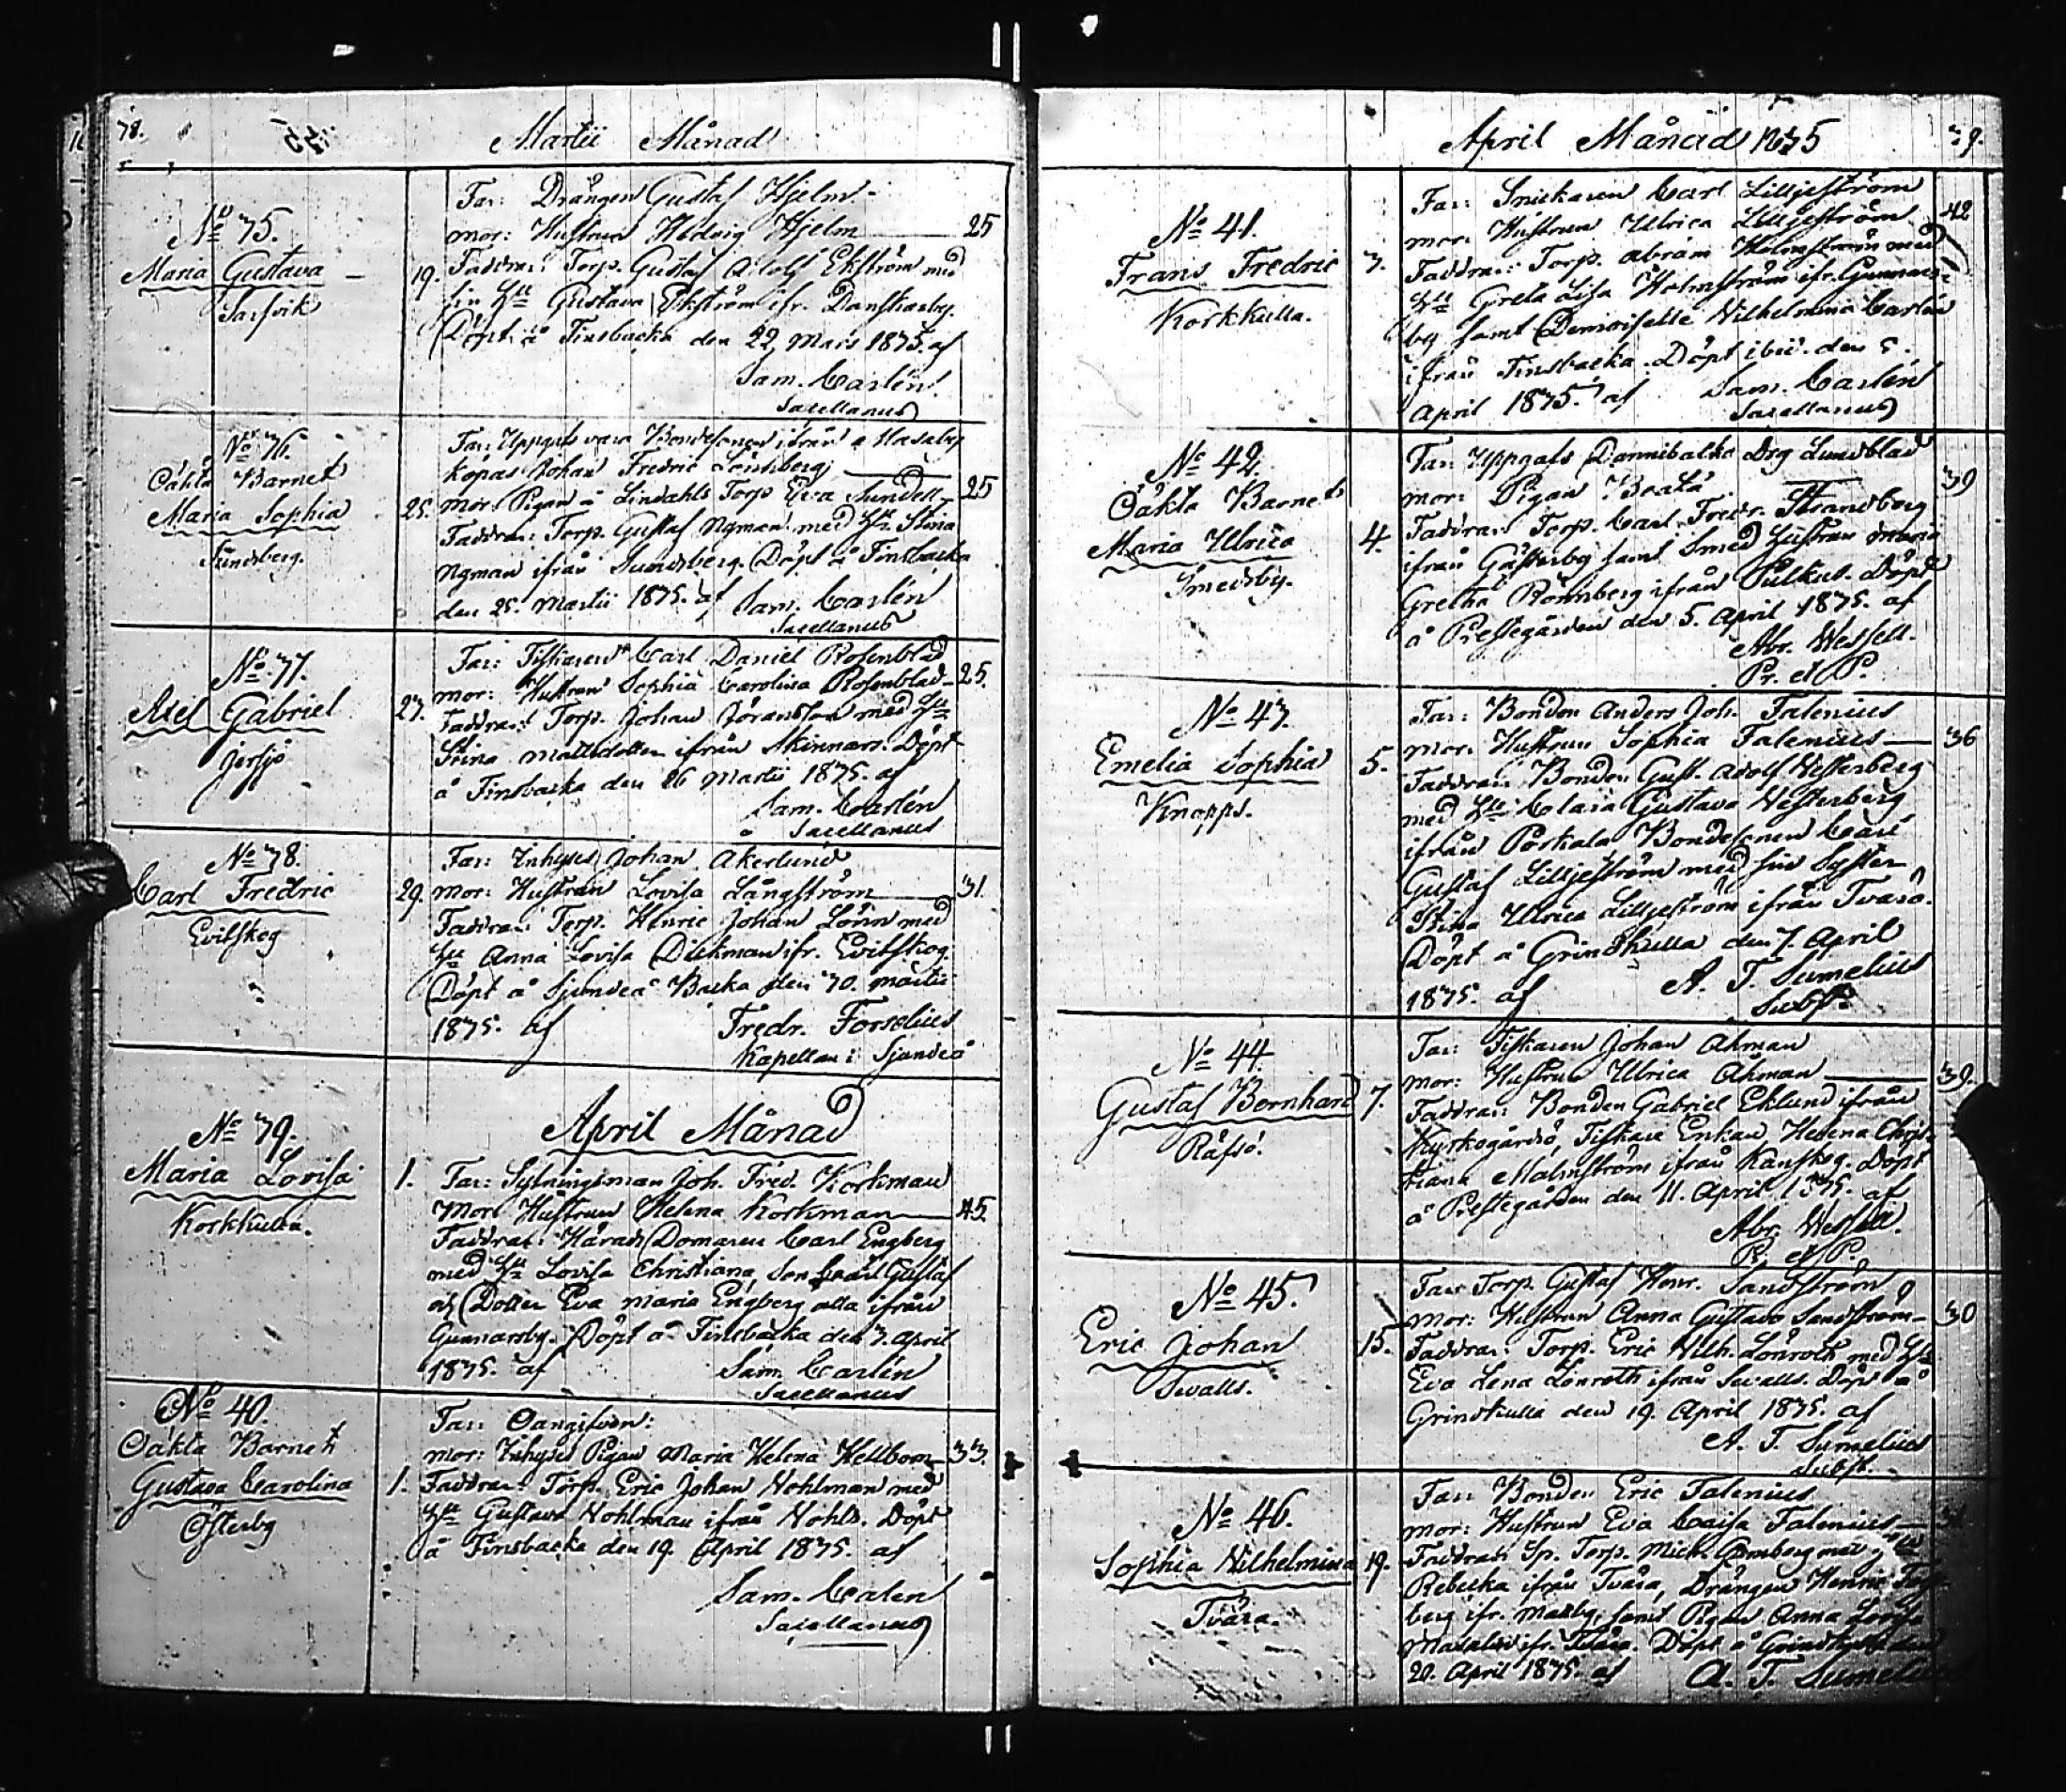 78.
Martii Månad
No 35.
Maria Gustava
Sarfvik
19.
Far: Drängen Gustaf Hjelm
mor: Hustrun Hedvig Hjelm 25
Faddrar: Torp. Gustaf Adolf Ekström med
sin Hu Gustava Ekström ifr. Danskarby.
Döpt å Finsbacka den 22 Mars 1835. af
Sam. Carlén
Sacellanus
No 36.
Oäkta Barnet
Maria Sophia
Sundsberg.
25.
Far: Uppgifs vara Bondesonen ifrån Masaby
Kopas Johan Fredric Lönnberg
mor: Pigan å Lindahls Torp Eva Sundell 25
Faddrar: Torp. Gustaf Nyman med Hu Stina
Nyman ifrån Sundsberg. Döpt å Finsbacka
den 25. Martii 1835. af Sam. Carlén
Sacellanus
No 37.
Axel Gabriel
Jersjö
27.
Far: Fiskaren Carl Daniel Rosenblad
mor: Hustrun Sophia Carolina Rosenblad 25.
Faddrar: Torp. Johan Jöransson med Hu
Stina Mattsdotter ifrån Skinnars. Döpt
å Finsbacka den 26 Martii 1835. af
Sam. Carlén
Sacellanus
No 38.
Carl Fredric
Evitskog
29.
Far: Inhyses Johan Åkerlund
mor: Hustrun Lovisa Långström 31.
Faddrar: Torp. Henric Johan Lönn med
Hu Anna Lovisa Dickman ifr. Evitskog.
Döpt å Sjundeå Backa den 30. martii
1835. af Fredr. Forselius
Kapellan i Sjundeå
April Månad
No 39.
Maria Lovisa
Korkkulla.
1.
Far: Sytningsman Joh. Fred. Korkman
Mor: Hustrun Helena Korkman 45.
Faddrar: Härads Domaren Carl Engberg
med Hu Lovisa Christiana, Son Carl Gustaf
och Dotter Eva Maria Engberg alla ifrån
Gunnarsby. Döpt å Finsbacka den 3. April
1835. af Sam. Carlén
Sacellanus
No 40.
Oäkta Barnet
Gustava Carolina
Österby
1.
Far: Oangifven:
mor: Inhyses Pigan Maria Helena Hellbom 33.
Faddrar: Torp. Eric Johan Nohlman med
Hu Gustava Nohlman ifrån Nohls. Döpt
å Finsbacka den 19. April 1835. af
Sam. Calen
Sacellanus
April Månad 1835 39.
No 41.
Frans Fredric
Korkkulla.
3.
Far: Snickaren Carl Lilljeström
mor: Hustrun Ulrica Lilljeström 42
Faddrar: Torp. Abram Holmström med
Hu Greta Lisa Holmström ifr. Gunnars-
by samt Demoiselle Wilhelmina Carlén
ifrån Finsbacka. Döpt ibid. den 5.
April 1835. af Sam. Carlén
Sacellanus
No 42.
Oäkta Barnet
Maria Ulrica
Smedsby.
4.
Far: Uppgafs Dannibalka Drg Lundblad
mor: Pigan Beata 39
Faddrar: Torp. Carl Fredr. Strandberg
ifrån Gästerby samt Smed Hustrun Maria
Gretha Rönnberg ifrån Pulkus. Döpt
å Prestegården den 5. April 1835. af
Abr. Wessell.
Pr. et P.
No 43.
Emelia Sophia
Knapps.
5.
Far: Bonden Anders Joh. Falenius
mor: Hustrun Sophia Falenius 36
Faddrar: Bonden Gust. Adolf Westerberg
med Hu Clara Gustava Westerberg
ifrån Porkala Bondesonen Carl
Gustaf Lilljeström med sin Syster
Stina Ulrica Lilljeström ifrån Tvarö.
Döpt å Grindkulla den 7. April
1835. af A. T. Sumelius
Subst.
No 44.
Gustaf Bernhard
Räfsö.
7.
Far: Fiskaren Johan Åhman
mor: Hustrun Ulrica Åhman 39.
Faddrar: Bonden Gabriel Eklund ifrån
Kyrkogårdsö, Fiskare Enkan Helena Chris-
tiana Malmström ifrån Kanskog. Döpt
å Prestegården den 11. April 1835. af
Abr. Wessell.
Pr. et P.
No 45.
Eric Johan
Swalls.
15.
Far: Torp. Gustaf Henr. Sandström
mor: Hustrun Anna Gustava Sandström 30
Faddrar: Torp. Eric Wilh. Lönroth med Hu
Eva Lena Lönroth ifrån Swalls. Döpt å
Grindkulla den 19. April 1835. af
A. T. Sumelius
Subst.
No 46.
Sophia Wilhelmina
Tvära.
19.
Far: Bonden Eric Falenius
mor: Hustrun Eva Caisa Falenius
Faddrar: Sp. Torp. Mich. Romberg med Hu
Rebecka ifrån Tvära, Drängen Henric
berg ifr. Masby, samt Pigan Anna Lovisa
ifr. Tvära. Döpt å Grindkulla den
20. April 1835. af A. T. Sumelius